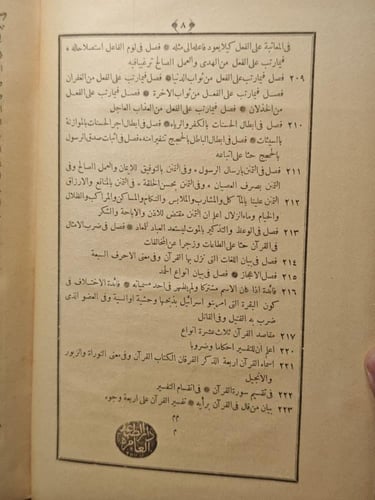 ﴿ ٨ ﴾
فى المعاتبة على الفعل كيلا يعود فاعله الى مثله * فصل فى لوم الفاعل استصلاحا له *
فصل فيما رتب على الفعل من الهدى والعمل الصالح ترغيبا فيه
٢٠٩ فصل فيما رتب على الفعل من ثواب الدنيا * فصل فيما رتب على الفعل من الغفران
فصل فيما رتب على الفعل من ثواب الآخرة * فصل فيما رتب على الفعل
من الخذلان * فصل فيما رتب على الفعل من العذاب العاجل
٢١٠ فصل فى ابطال الحسنات بالكفر والرياء * فصل فى ابطال اجر الحسنات بالموازنة
بالسيئات * فصل فى ابطال الباطل بالحجج تنفيرا منه * فصل فى اثبات صدق الرسول
بالحجج حثا على اتباعه
٢١١ فصل فى التمنن بارسال الرسول * وفى التمنن بالتوفيق للايمان والعمل الصالح وفى
التمنن بصرف العصيان * وفى التمنن بحسن الخلقة * فى التمنن بالمنافع والارزاق
٢١٢ التمنن علينا بالمآكل والمشارب والملابس والتناكح والمساكن والمراكب والظلال
والخيام وماء الزلال اعلم ان التمنن مقتض للاذن والاباحة والشكر
٢١٣ فصل فى الوعظ والتذكير بالموت ليستعد العباد للمعاد * فصل فى ضرب الامثال
فى القرآن حثا على الطاعات وزجرا عن المخالفات
٢١٤ فصل فى بيان اللغات التى نزل بها القرآن وفى معنى الاحرف السبعة
٢١٥ فصل الاعجاز * فصل فى بيان انواع الحمد
٢١٦ فائدة اذا كان الاسم مشتركا ولم يظهر فى احد مسمياته * فائدة الاختلاف فى
كون البقرة التى امر بنو اسرائيل بذبحها وحشية او انسية وفى العضو الذى
ضرب به القتيل وفى القاتل
٢١٧ مقاصد القرآن ثلاث عشرة انواع
٢٢٠ اعلم ان للتفسير احكاما وضروبا
٢٢١ اسماء القرآن اربعة الذكر الفرقان الكتاب القرآن وفى معنى التوراة والزبور
والانجيل
٢٢٢ فى تقسيم سورة القرآن * فى انقسام التفسير
٢٢٣ بيان من قال فى القرآن برأيه * تفسير القرآن على اربعة وجوه
م م
م
دار الطباعة العامرة